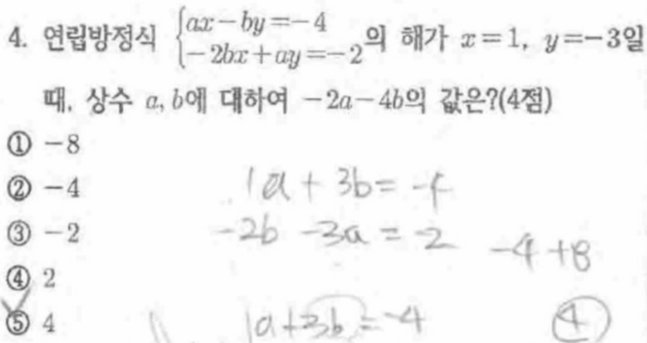 4. 연립방정식 {ax-by=-4
-2bx+ay=-2 의 해가 x=1, y=-3일
때, 상수 a, b에 대하여 -2a-4b의 값은?(4점)
① -8
② -4
1a+3b=-4
③ -2
-2b-3a=-2
-4+8
④ 2
⑤ 4
1a+3b=-4
4